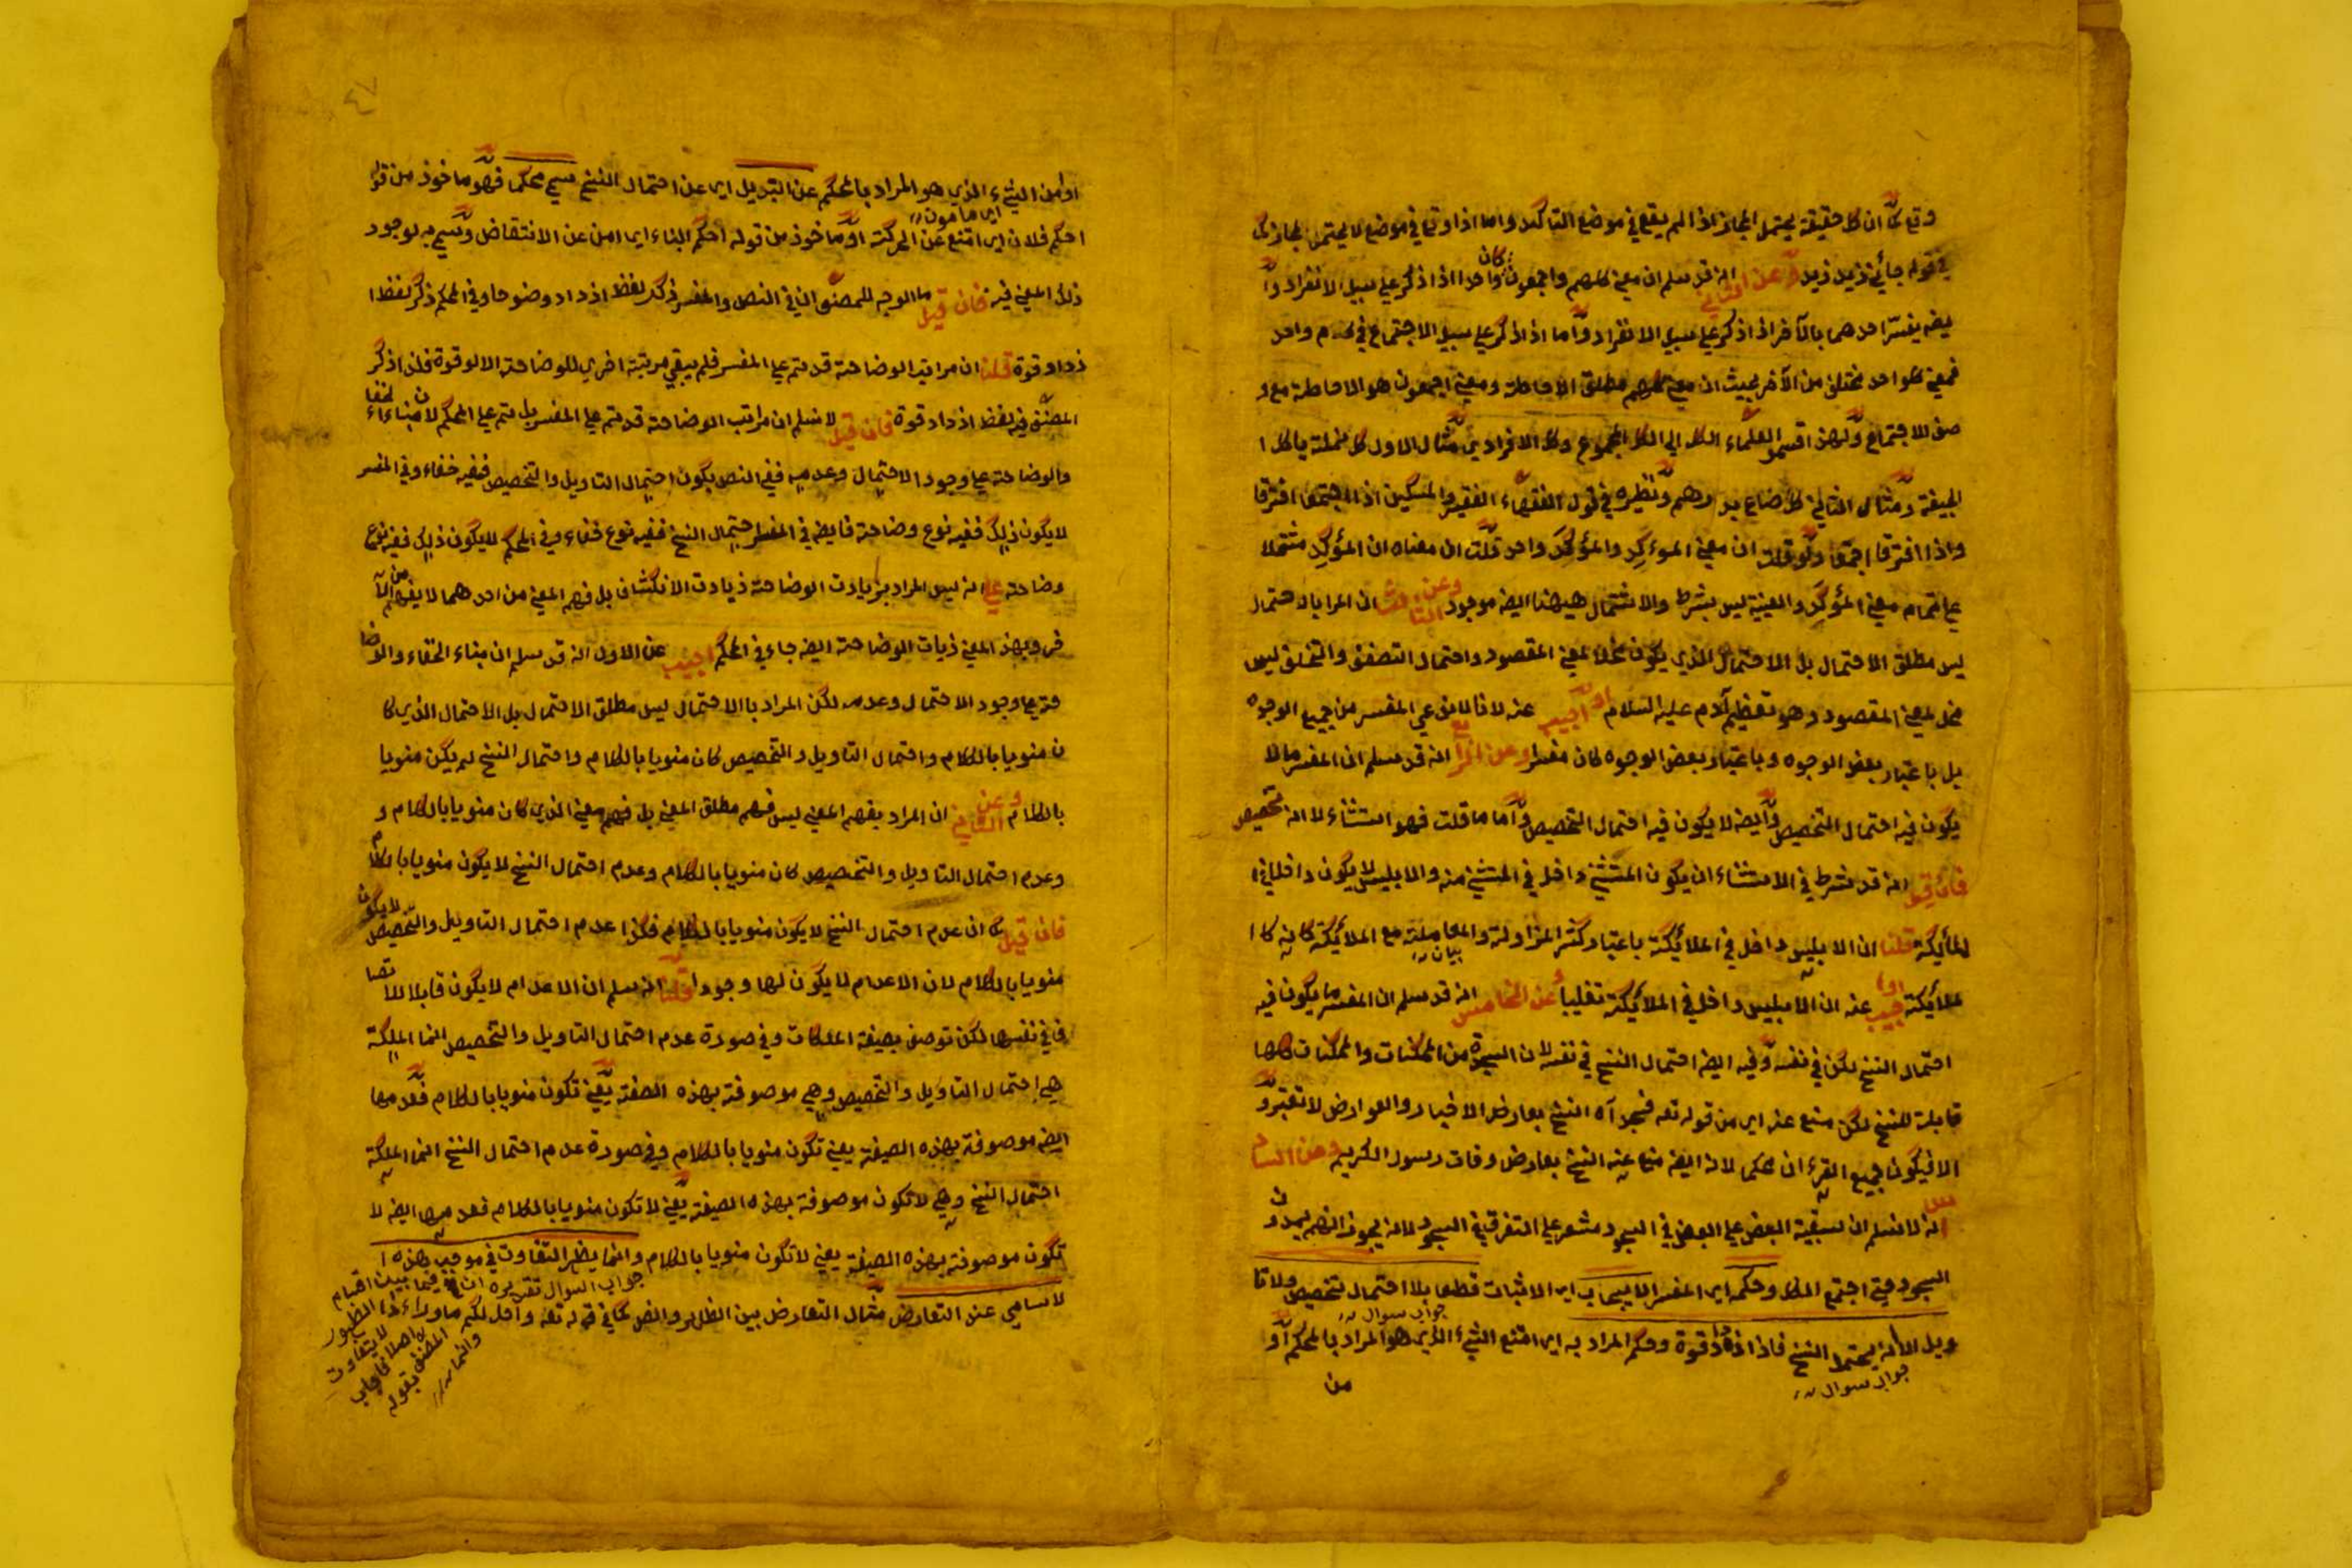 وقع كما ان كل حقيقة يحتمل المجاز اذا لم يقع في موضع التاكيد واما اذا وقع في موضع لا يحتمل المجاز كما
في قوله جائني زيد زيد وعن الثاني انه قد سلم ان معنى كلهم واجمعون كان واحدا اذا ذكر على سبيل الانفراد و
يفسر احدهما بالآخر اذا ذكر على سبيل الانفراد واما اذا ذكر على سبيل الاجتماع في كلام واحد
فمعنى كل واحد مختلف من الآخر بحيث ان معنى كلهم مطلق الاحاطة ومعنى اجمعون هو الاحاطة مع و
صف الاجتماع ولهذا اقسم العلماء الكل الى الكل المجموع وكل الافرادي مثال الاول كل نملة ياكل ا
لجيفة ومثال الثاني كل صاع بدرهم ونظيره في قول الفقهاء الفقير والمسكين اذا اجتمعا افترقا
واذا افترقا اجتمعا ولو قلت ان معنى الموءكد والمؤكد واحد قلت ان معناه ان المؤكد مشتملا
على تمام معنى المؤكد والمعينية ليس بشرط والاشتمال هيهنا ايضه موجود وعن الثالث ان المراد بالاحتمال
ليس مطلق الاحتمال بل الاحتمال الذي يكون مخلا لمعنى المقصود واحتمال التصفف والتحلق ليس
مخل لمعنى المقصود وهو تعظيم آدم عليه السلام او اجيب عنه لانا لا ندعي المفسر من جميع الوجوه
بل باعتبار بعض الوجوه وباعتبار بعض الوجوه كان مفسرا وعن الرابع انه قد سلم ان المفسر ما لا
يكون فيه احتمال التخصيص وايضه لا يكون فيه احتمال التخصيص واما ما قلت فهو استثناء لا انه تخصيص
فان قيل انه قد شرط في الاستثناء ان يكون المستثنى داخل في المستثنى منه والابليس لا يكون داخلا في ا
لملأيكة قلنا ان الابليس داخل في الملأيكة باعتبار كثر المزاولة والمعاملة مع الملأيكة كانه كا
لملأيكة او اجيب عنه ان الابليس داخل في الملأيكة تغليبا وعن الخامس انه قد سلم ان المفسر ما يكون فيه
احتمال النسخ لكن في نفسه وفيه ايضه احتمال النسخ في نفسه لان السجدة من الممكنات والممكنات كلها
قابلة للنسخ لكن منع عنه اي من قوله تعه فسجد آه النسخ بعارض الاخبار والعوارض لا تعتبر و
الا فيكون جميع القرءان محكما لانه ايضه منع عنه النسخ بعارض وفات رسول الكريم وعن السا
دس انه لا نسلم ان سبقية البعض على البعض في السجود مشعر على التفرق في السجود لانه يجوز انهم يمدون
السجود حتى اجتمع الكل وحكمه اي المفسر الايجاب اي الاثبات قطعا بلا احتمال تخصيص ولا تا
جواب سوال
ويل الا انه يحتمل النسخ فاذا ازداد قوة وحكم المراد به اي امتنع الشيء الذي هو المراد بالمحكم او
جواب سوال
من
٤٧
او امن الشيء الذي هو المراد بالمحكم عن التبديل اي عن احتمال النسخ سمي محكما فهو ماخوذ من قول
اي مامون
احكم فلان اي امتنع عن الحركة او ماخوذ من قوله احكم البناء اي امن عن الانتقاض وسمي به لوجود
ذلك المعنى فيه فان قيل ما الوجه للمصنف ان في النص والمفسر ذكر لفظ ازداد وضوحا وفي المحكم ذكر لفظ ا
زداد قوة قلنا ان مراتب الوضاحة قد يتم على المفسر فلم يبقى مرتبة اخرى للوضاحة الا لوقوة فلذا ذكر
المصنف فيه لفظ ازداد قوة فان قيل لا نسلم ان مراتب الوضاحة قد تم على المفسر بل تم على المحكم لان مبناء الخفاء
والوضاحة على وجود الاحتمال وعدمه ففي النص يكون احتمال التاويل والتخصيص ففيه خفاء وفي المفسر
لا يكون ذلك ففيه نوع وضاحة فايضه في المفسر احتمال النسخ ففيه نوع خفاء وفي المحكم لا يكون ذلك ففيه نوع
وضاحة على انه ليس المراد بزيادت الوضاحة زيادت الانكشاف بل فهم المعنى من احدهما لا يفهم من الآ
خر وبهذا المعنى زيات الوضاحة ايضه جاء في المحكم اجيب عن الاول انه قد سلم ان مبناء الخفاء والوضا
حة على وجود الاحتمال وعدمه لكن المراد باالاحتمال ليس مطلق الاحتمال بل الاحتمال الذي كا
ن منويا بالكلام واحتمال التاويل والتخصيص كان منويا بالكلام واحتمال النسخ لم يكن منويا
بالكلام وعن الثاني ان المراد بفهم المعنى ليس فهم مطلق المعنى بل فهم معنى الذي كان منويا بالكلام و
وعدم احتمال التاويل والتخصيص كان منويا بالكلام وعدم احتمال النسخ لا يكون منويا بالكلام
فان قيل كما ان عدم احتمال النسخ لا يكون منويا بالكلام فكذا عدم احتمال التاويل والتخصيص لا يكون
منويا بالكلام لان الاعدام لا يكون لها وجود قلنا انه سلم ان الاعدام لا يكون قابلا للاتصا
ف في نفسها لكن توصف بصيغة الملكات وفي صورة عدم احتمال التاويل والتخصيص انما الملكة
هي احتمال التاويل والتخصيص وهي موصوفة بهذه الصفة يعني تكون منويا بالكلام فعدمها
ايضه موصوفة بهذه الصيغة يعني تكون منويا بالكلام وفي صورة عدم احتمال النسخ انما الملكة
احتمال النسخ وهي لا تكون موصوفة بهذه الصيغة يعني لا تكون منويا بالكلام فعدمها ايضه لا
تكون موصوفة بهذه الصيغة يعني لا تكون منويا بالكلام وانما يظهر التفاوت في موجب هذه ا
لاسامي عند التعارض مثال التعارض بين الظاهر والنص كما في قوله تعه واحل لكم ماوراء ذا
جواب السوال تقريره ان فيما بين اقسام
الظهور
لا يتفاوت
اصلا فاجاب
المصنف بقوله
وانما